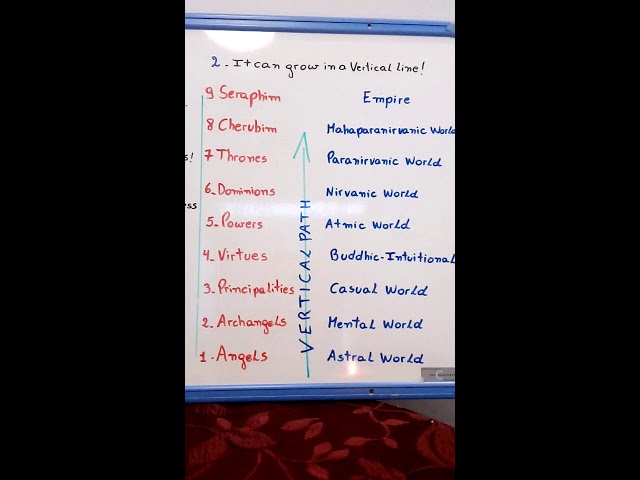 2 - It can grow in a Vertical line!
9 Seraphim Empire
8 Cherubim Mahaparanirvanic World
7 Thrones Paranirvanic World
s!
6-Dominions Nirvanic World
ess
5-Powers Atmic World
4-Virtues Buddhic-Intuitional
3-Principalities Casual World
2-Archangels Mental World
1-Angels Astral World
VERTICAL PATH